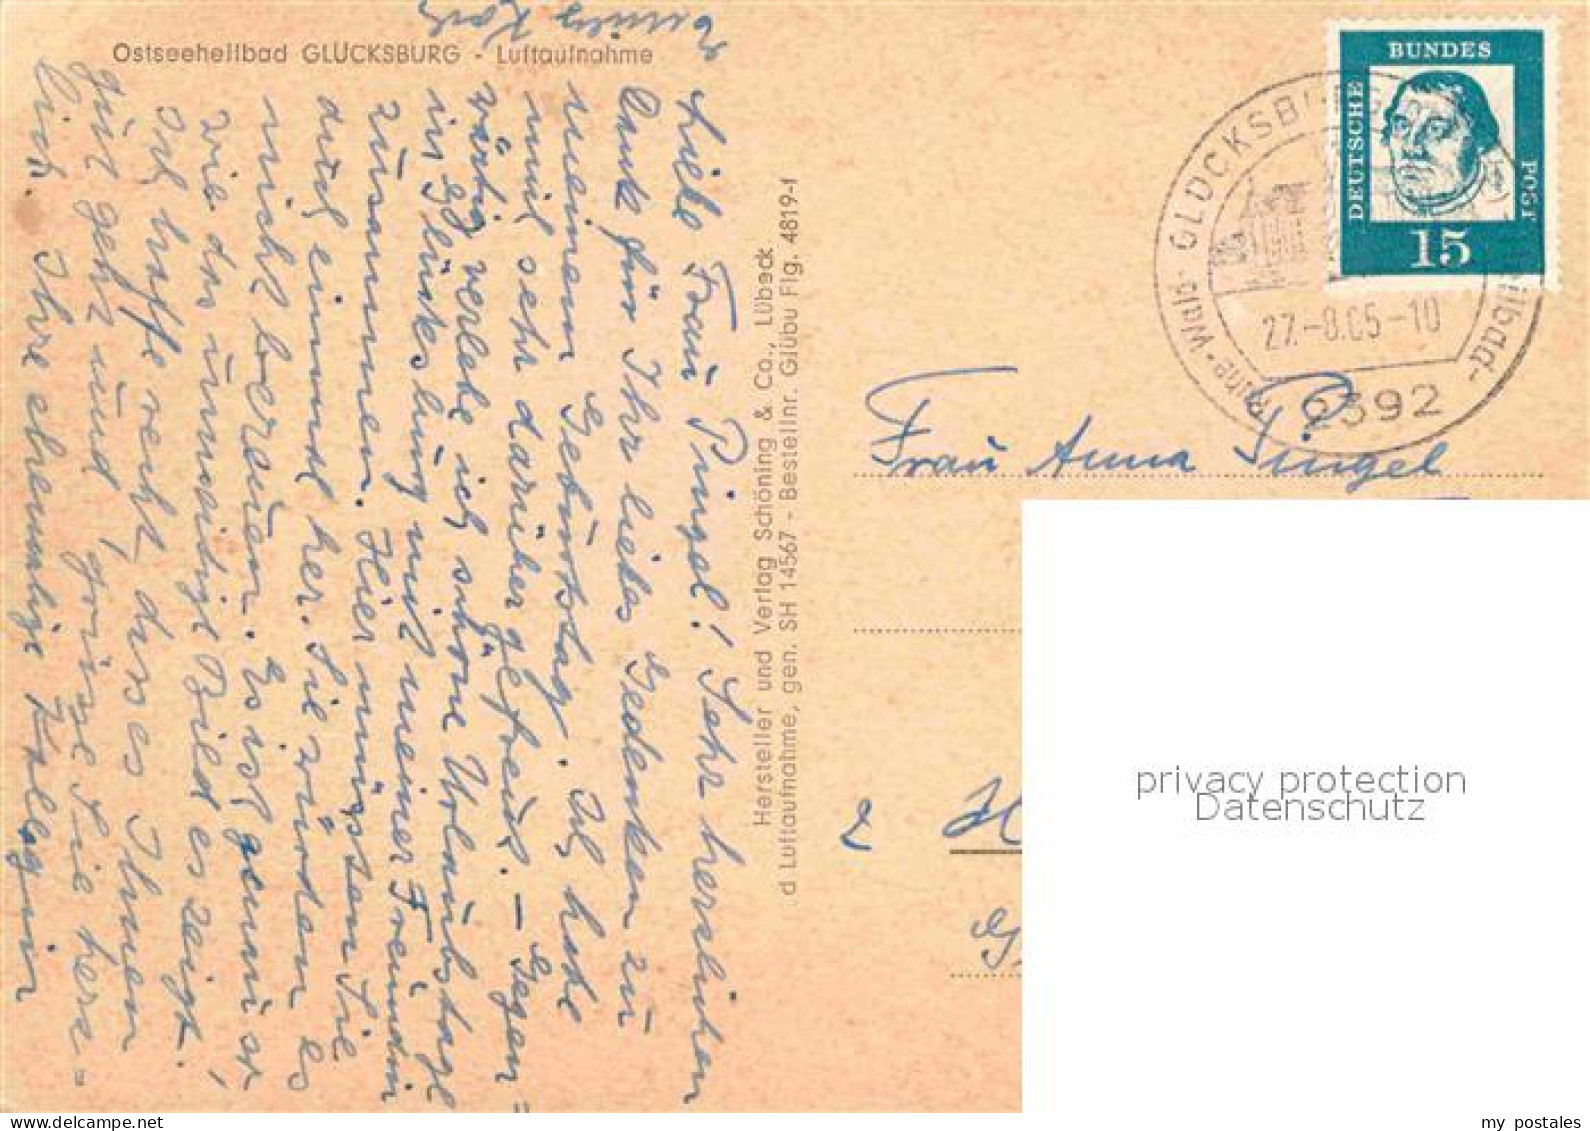 Ostseeheilbad GLÜCKSBURG - Luftaufnahme
Liebe Frau Pingel! Sehr herzlichen
Dank für Ihr liebes Gedenken zu
meinem Geburtstag. Ich habe
mich sehr darüber gefreut. – Gegen=
wärtig verlebe ich schöne Urlaubstage
in Glücksburg mit meiner Freundin
zusammen. Hier müssten Sie
auch einmal her. Sie würden es
nicht bereuen. Es ist genau so,
wie das umseitige Bild es zeigt.
Ich hoffe recht, dass es Ihnen
gut geht und grüße Sie herz=
lich. Ihre ehemalige Kollegin
Hersteller und Verlag Schöning & Co., Lübeck
d Luftaufnahme, gen. SH 14567 - Bestellnr. Glübu Flg. 4819-f
DEUTSCHE
BUNDES
POST
15
GLÜCKSBURG
27.-8.65-10
2392
Frau Anna Pingel
2 H
privacy protection
Datenschutz
my_postales